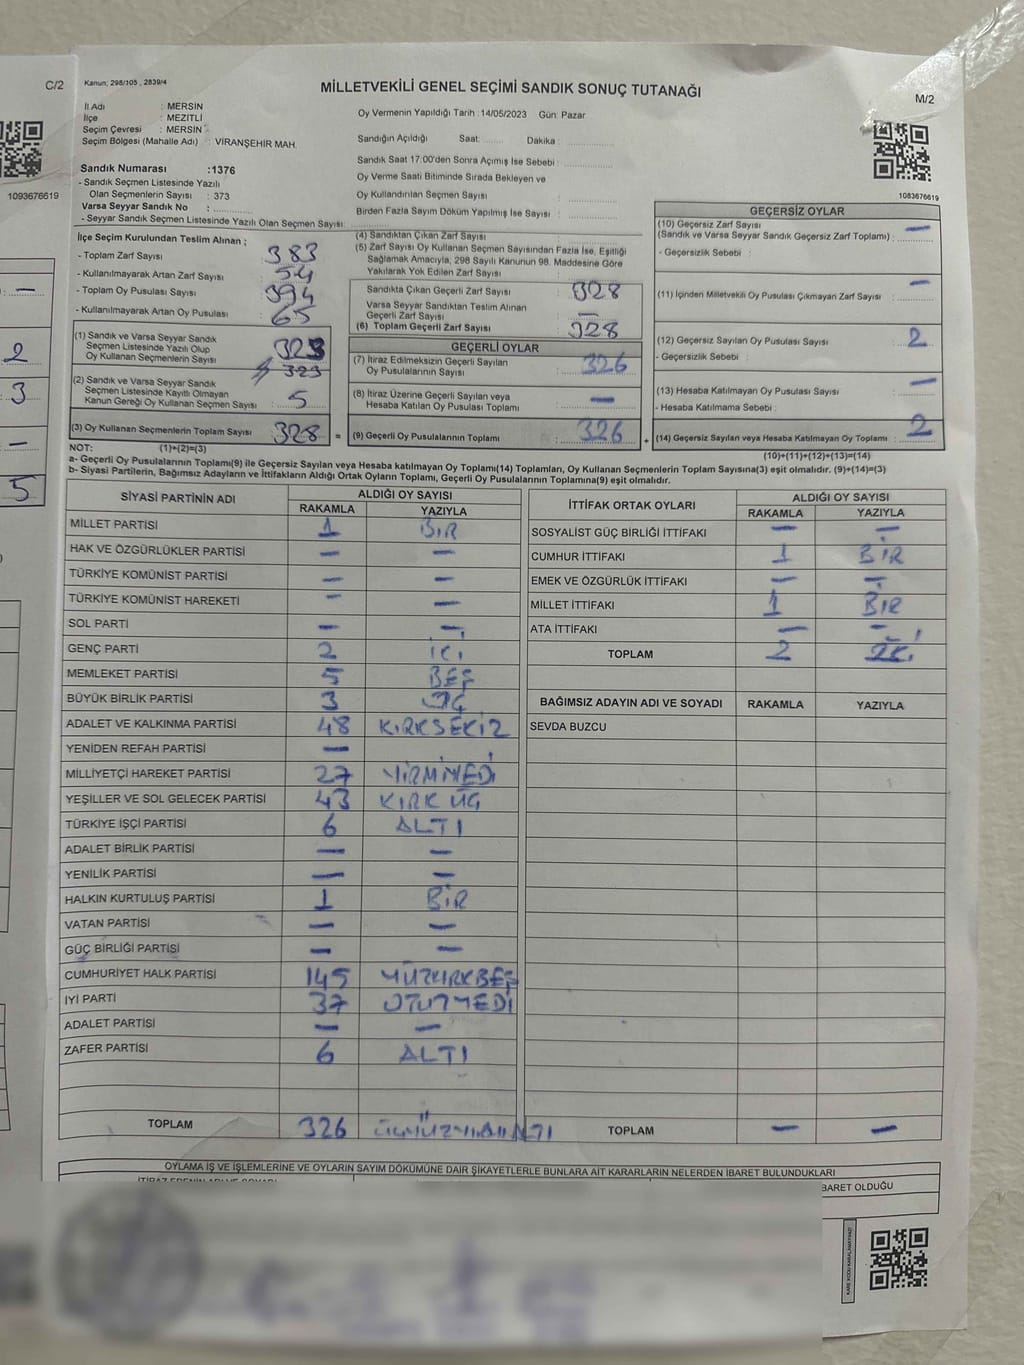 C/2
Kanun; 298/105 , 2839/4
MİLLETVEKİLİ GENEL SEÇİMİ SANDIK SONUÇ TUTANAĞI
M/2
İl Adı : MERSİN
İlçe : MEZİTLİ
Seçim Çevresi : MERSİN
Seçim Bölgesi (Mahalle Adı) : VİRANŞEHİR MAH.
Sandık Numarası :1376
- Sandık Seçmen Listesinde Yazılı
Olan Seçmenlerin Sayısı : 373
Varsa Seyyar Sandık No :
- Seyyar Sandık Seçmen Listesinde Yazılı Olan Seçmen Sayısı:
Oy Vermenin Yapıldığı Tarih :14/05/2023 Gün: Pazar
Sandığın Açıldığı Saat: Dakika :
Sandık Saat 17.00'den Sonra Açımış İse Sebebi :
Oy Verme Saati Bitiminde Sırada Bekleyen ve
Oy Kullandırılan Seçmen Sayısı :
Birden Fazla Sayım Döküm Yapılmış İse Sayısı :
1093676619
1083676619
İlçe Seçim Kurulundan Teslim Alınan ;
- Toplam Zarf Sayısı : 383
- Kullanılmayarak Artan Zarf Sayısı : 54
- Toplam Oy Pusulası Sayısı : 394
- Kullanılmayarak Artan Oy Pusulası : 65
(1) Sandık ve Varsa Seyyar Sandık
Seçmen Listesinde Yazılı Olup
Oy Kullanan Seçmenlerin Sayısı : 323
323
(2) Sandık ve Varsa Seyyar Sandık
Seçmen Listesinde Kayıtlı Olmayan
Kanun Gereği Oy Kullanan Seçmen Sayısı : 5
(3) Oy Kullanan Seçmenlerin Toplam Sayısı 328 =
(4) Sandıktan Çıkan Zarf Sayısı :
(5) Zarf Sayısı Oy Kullanan Seçmen Sayısından Fazla İse, Eşitliği
Sağlamak Amacıyla, 298 Sayılı Kanunun 98. Maddesine Göre
Yakılarak Yok Edilen Zarf Sayısı :
Sandıkta Çıkan Geçerli Zarf Sayısı : 328
Varsa Seyyar Sandıktan Teslim Alınan
Geçerli Zarf Sayısı : —
(6) Toplam Geçerli Zarf Sayısı : 328
GEÇERLİ OYLAR
(7) İtiraz Edilmeksizin Geçerli Sayılan
Oy Pusulalarının Sayısı : 326
(8) İtiraz Üzerine Geçerli Sayılan veya
Hesaba Katılan Oy Pusulası Toplamı : —
(9) Geçerli Oy Pusulalarının Toplamı : 326 +
GEÇERSİZ OYLAR
(10) Geçersiz Zarf Sayısı
(Sandık ve Varsa Seyyar Sandık Geçersiz Zarf Toplamı) : —
- Geçersizlik Sebebi :
(11) İçinden Milletvekili Oy Pusulası Çıkmayan Zarf Sayısı : —
(12) Geçersiz Sayılan Oy Pusulası Sayısı : 2
- Geçersizlik Sebebi :
(13) Hesaba Katılmayan Oy Pusulası Sayısı : —
- Hesaba Katılmama Sebebi :
(14) Geçersiz Sayılan veya Hesaba Katılmayan Oy Toplamı : 2
NOT: (1)+(2)=(3)
(10)+(11)+(12)+(13)=(14)
a- Geçerli Oy Pusulalarının Toplamı(9) ile Geçersiz Sayılan veya Hesaba katılmayan Oy Toplamı(14) Toplamları, Oy Kullanan Seçmenlerin Toplam Sayısına(3) eşit olmalıdır. (9)+(14)=(3)
b- Siyasi Partilerin, Bağımsız Adayların ve İttifakların Aldığı Ortak Oyların Toplamı, Geçerli Oy Pusulalarının Toplamına(9) eşit olmalıdır.
SİYASİ PARTİNİN ADI ALDIĞI OY SAYISI
RAKAMLA YAZIYLA
MİLLET PARTİSİ 1 BİR
HAK VE ÖZGÜRLÜKLER PARTİSİ — —
TÜRKİYE KOMÜNİST PARTİSİ — —
TÜRKİYE KOMÜNİST HAREKETİ — —
SOL PARTİ — —
GENÇ PARTİ 2 İKİ
MEMLEKET PARTİSİ 5 BEŞ
BÜYÜK BİRLİK PARTİSİ 3 ÜÇ
ADALET VE KALKINMA PARTİSİ 48 KIRKSEKİZ
YENİDEN REFAH PARTİSİ —
MİLLİYETÇİ HAREKET PARTİSİ 27 YİRMİYEDİ
YEŞİLLER VE SOL GELECEK PARTİSİ 43 KIRK ÜÇ
TÜRKİYE İŞÇİ PARTİSİ 6 ALTI
ADALET BİRLİK PARTİSİ — —
YENİLİK PARTİSİ — —
HALKIN KURTULUŞ PARTİSİ 1 BİR
VATAN PARTİSİ — —
GÜÇ BİRLİĞİ PARTİSİ — —
CUMHURİYET HALK PARTİSİ 145 YÜZKIRKBEŞ
İYİ PARTİ 37 OTUZYEDİ
ADALET PARTİSİ — —
ZAFER PARTİSİ 6 ALTI
TOPLAM 326
İTTİFAK ORTAK OYLARI ALDIĞI OY SAYISI
RAKAMLA YAZIYLA
SOSYALİST GÜÇ BİRLİĞİ İTTİFAKI — —
CUMHUR İTTİFAKI 1 BİR
EMEK VE ÖZGÜRLÜK İTTİFAKI — —
MİLLET İTTİFAKI 1 BİR
ATA İTTİFAKI — —
TOPLAM 2 İKİ
BAĞIMSIZ ADAYIN ADI VE SOYADI RAKAMLA YAZIYLA
SEVDA BUZCU
TOPLAM — —
OYLAMA İŞ VE İŞLEMLERİNE VE OYLARIN SAYIM DÖKÜMÜNE DAİR ŞİKAYETLERLE BUNLARA AİT KARARLARIN NELERDEN İBARET BULUNDUKLARI
BARET OLDUĞU
2
3
—
5